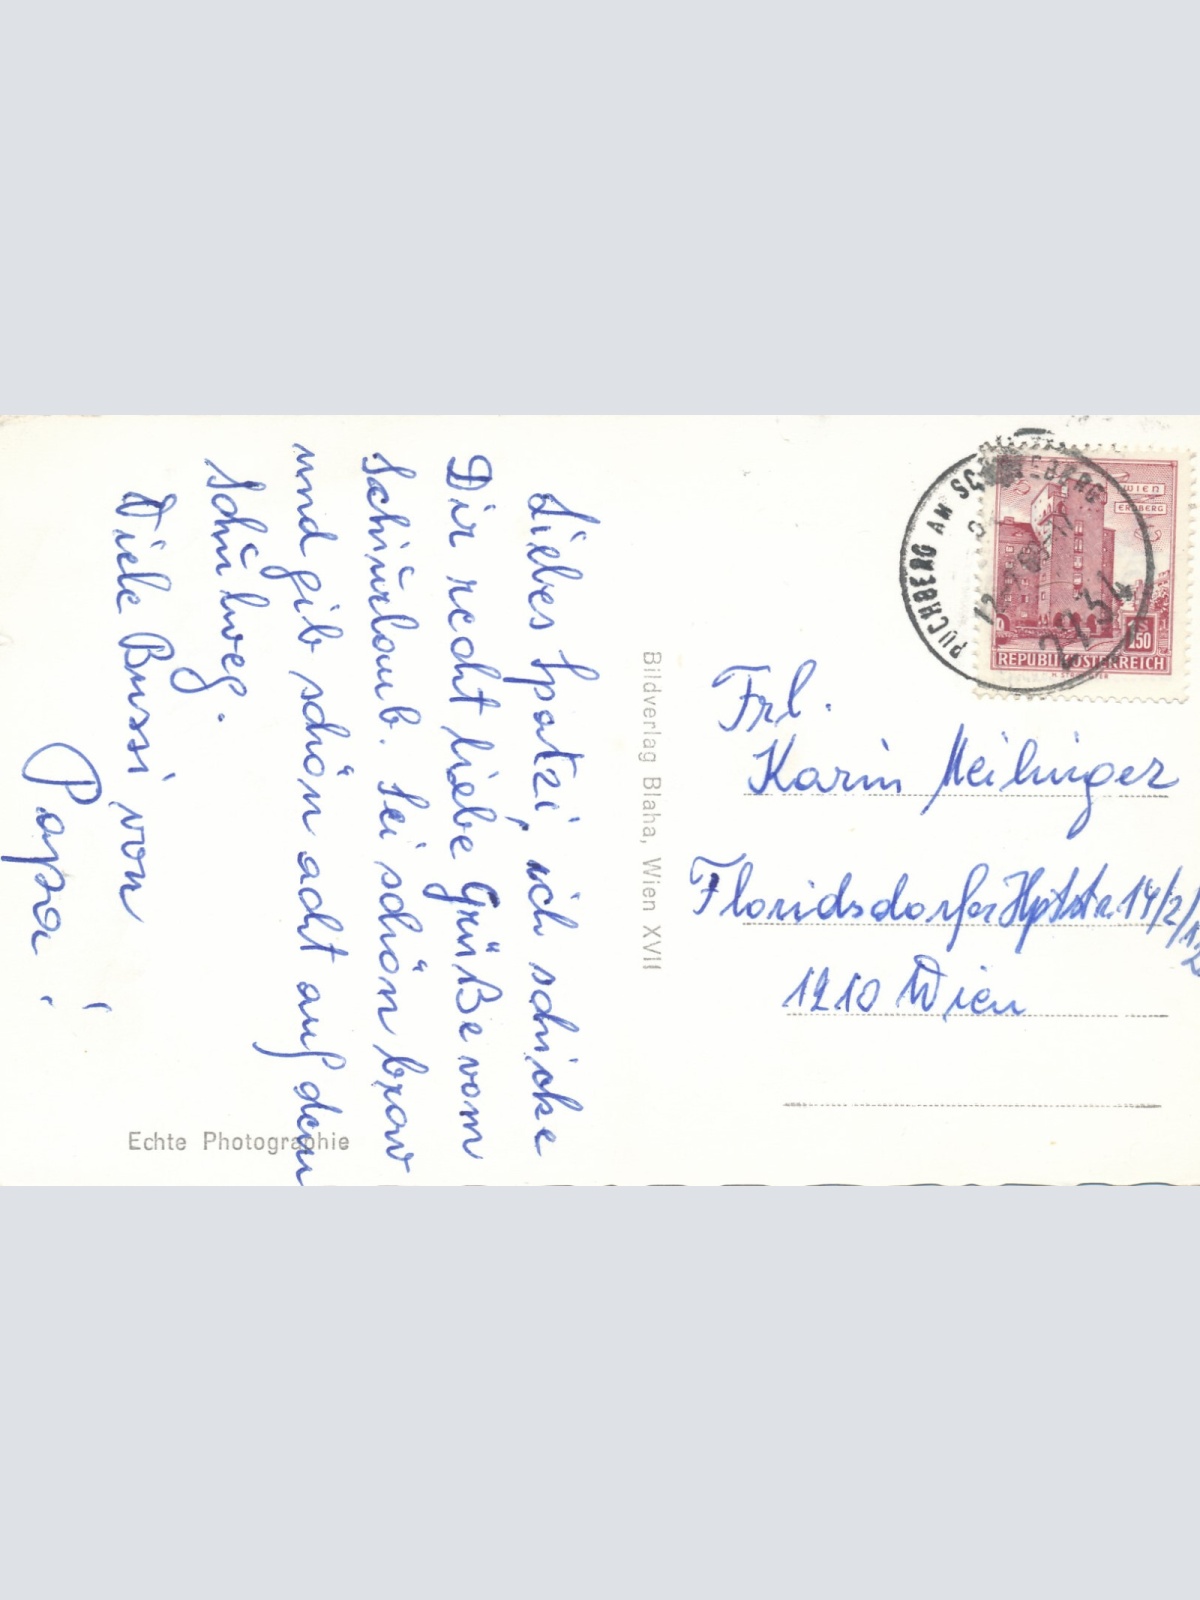 Liebes Spatzi, ich schicke
Dir recht liebe Grüße vom
Schiurlaub. Sei schön brav
und gib schön acht auf dem
Schulweg.
Viele Bussi von
Papa!
Echte Photographie
Bildverlag Blaha, Wien XVII
PUCHBERG AM SCHNEEBERG
2734
WIEN
ERDBERG
1.50
REPUBLIK ÖSTERREICH
Frl.
Karin Meilinger
Floridsdorfer Hptstr. 14/2/12
1210 Wien